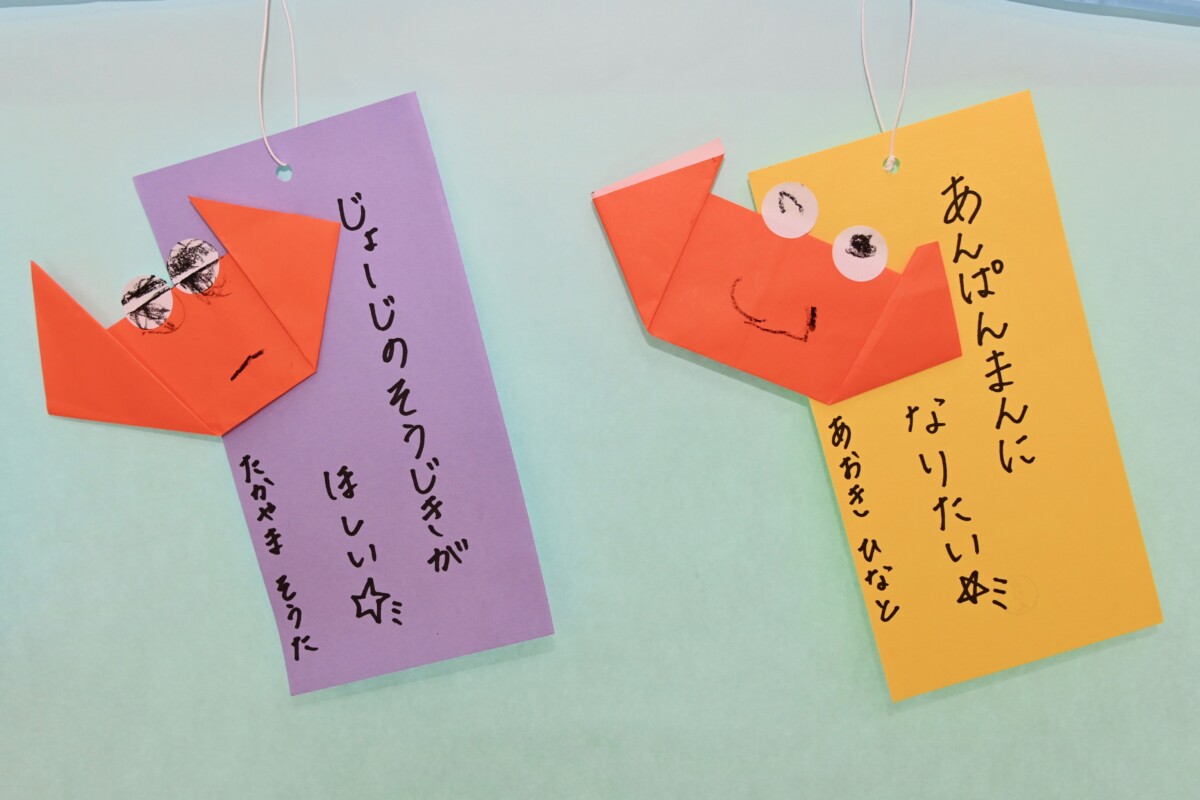 じょーじのそうじきが
ほしい☆
たかやま そうた
あんぱんまんに
なりたい☆
あおき ひなと